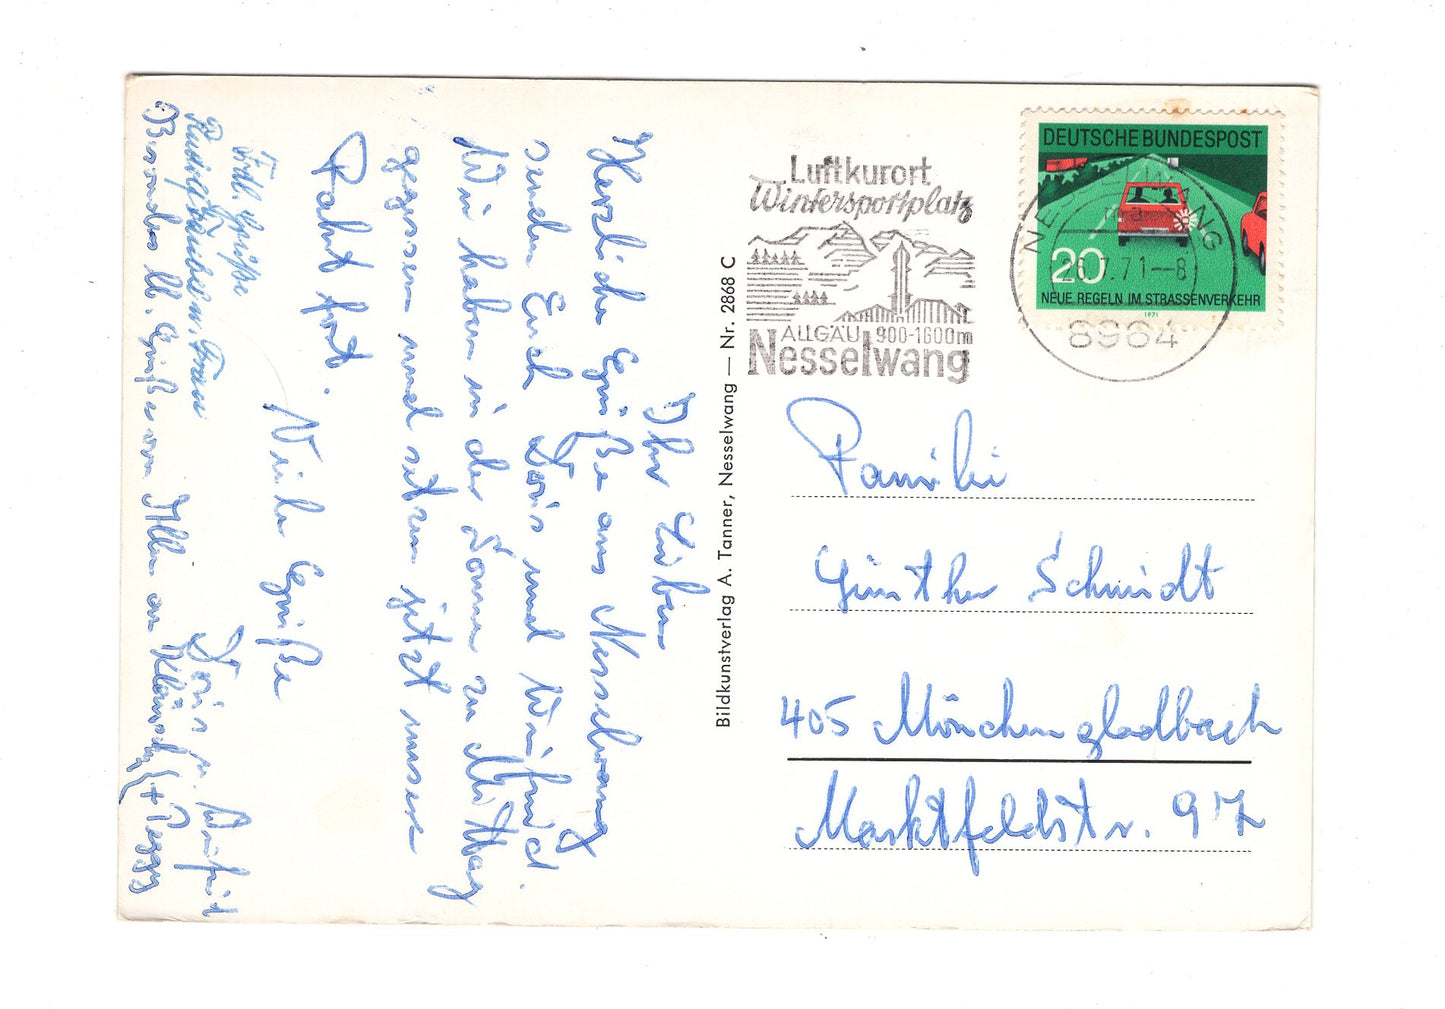 Ihr Lieben
Herzliche Grüße aus Nesselwang
senden Euch Doris und Winfried.
Wir haben in der Sonne zu Mittag
gegessen und setzen jetzt unsere
Fahrt fort.
Viele Grüße
Doris u. Winfried
Frdl. Grüße
Rudolf u. Frau
Besonders lb. Grüße von Allen an Kläuschen (+ Peggy
Bildkunstverlag A. Tanner, Nesselwang — Nr. 2868 C
Luftkurort
Wintersportplatz
ALLGÄU 900-1600m
Nesselwang
DEUTSCHE BUNDESPOST
20
NEUE REGELN IM STRASSENVERKEHR
1971
NESSELWANG
a
26.7.71—8
8964
Familie
Günther Schmidt
405 Mönchengladbach
Marktfeldstr. 97